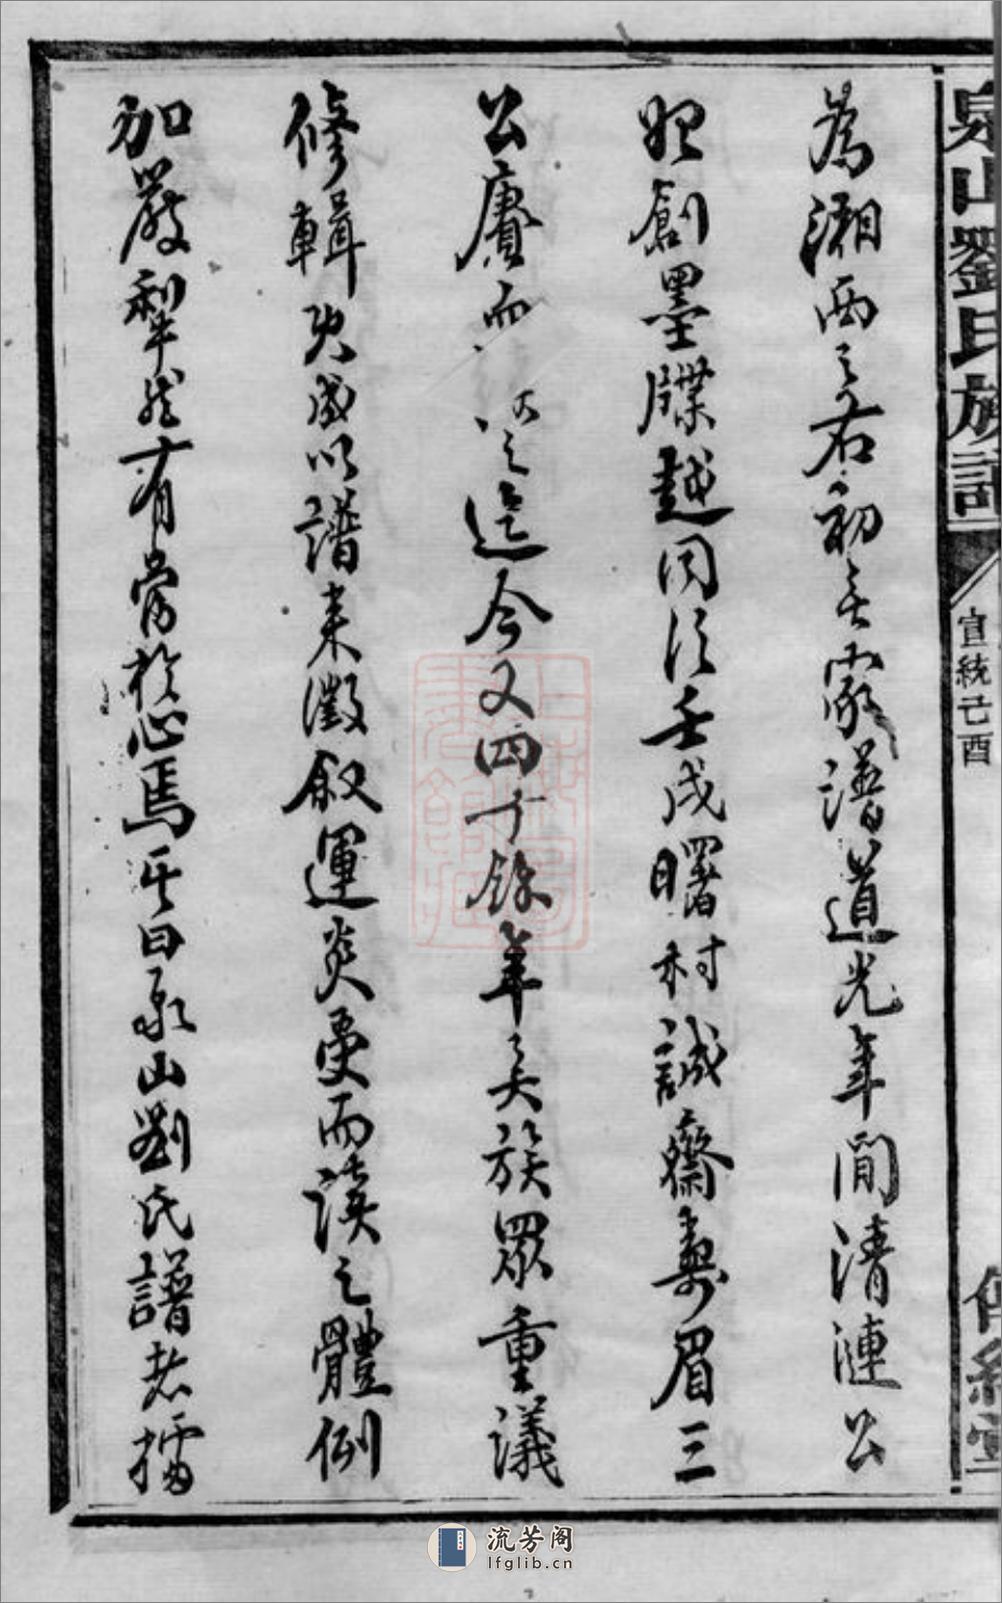 泉山劉氏族譜
宣統己酉
為湘西之右初無家譜道光年間清漣公
始創墨牒越同治壬戌曙村誠齋壽眉三
公賡而 之迄今又四十餘年矣族眾重議
修輯炎成以譜來徵叙運炎受而讀之體例
加嚴犁然有當於心焉其曰泉山劉氏譜者擂
流芳阁
lfglib.cn